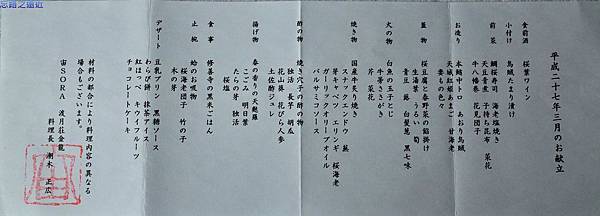 忘路之遠近
平成二十七年三月のお献立
食前酒 桜葉ワイン
小付け 烏賊たまり漬け
前菜 鯛桜寿司 海老塩焼き
天豆蜜煮 子持ち昆布 菜花
牛八幡巻 花見団子
お造り 本鮪中トロ あおり烏賊
甘海老
妻もの色々
蓋物 桜豆腐と春野菜の餡掛け
生湯葉 うるい 筍
青豆 蕗 白髪葱 黒七味
火の物 白魚の玉子とじ
牛蒡ささがき
芹 菜花
焼き物 国産牛炙り焼き
スナックエンドウ 蕪
芽キャベツ エリンギ 桜海老
ガーリックオリーブオイル
バルサミコソース
酢の物 焼き穴子の酢の物
独活 長芋 胡瓜
花山葵 花びら人参
土佐酢ジュレ
揚げ物 春の香りの天麩羅
こごみ 明日葉
たらの芽 独活
桜塩
食事 修善寺の黒米ごはん
止椀 蛤のお吸物
桜海老団子 竹の子
木の芽
デザート 豆乳プリン 黒糖ソース
わらび餅 抹茶アイス
紅ほっぺ キウイフルーツ
チョコレートケーキ
材料の都合により料理内容の異なる
場合もございます。
宙SORA 渡月荘金龍
料理長 正広
宙